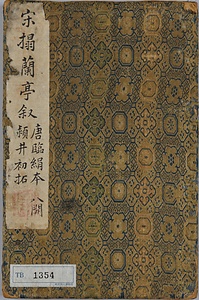 宋搨蘭亭叙
唐臨絹本
潁井初拓
八闊
TB 1354